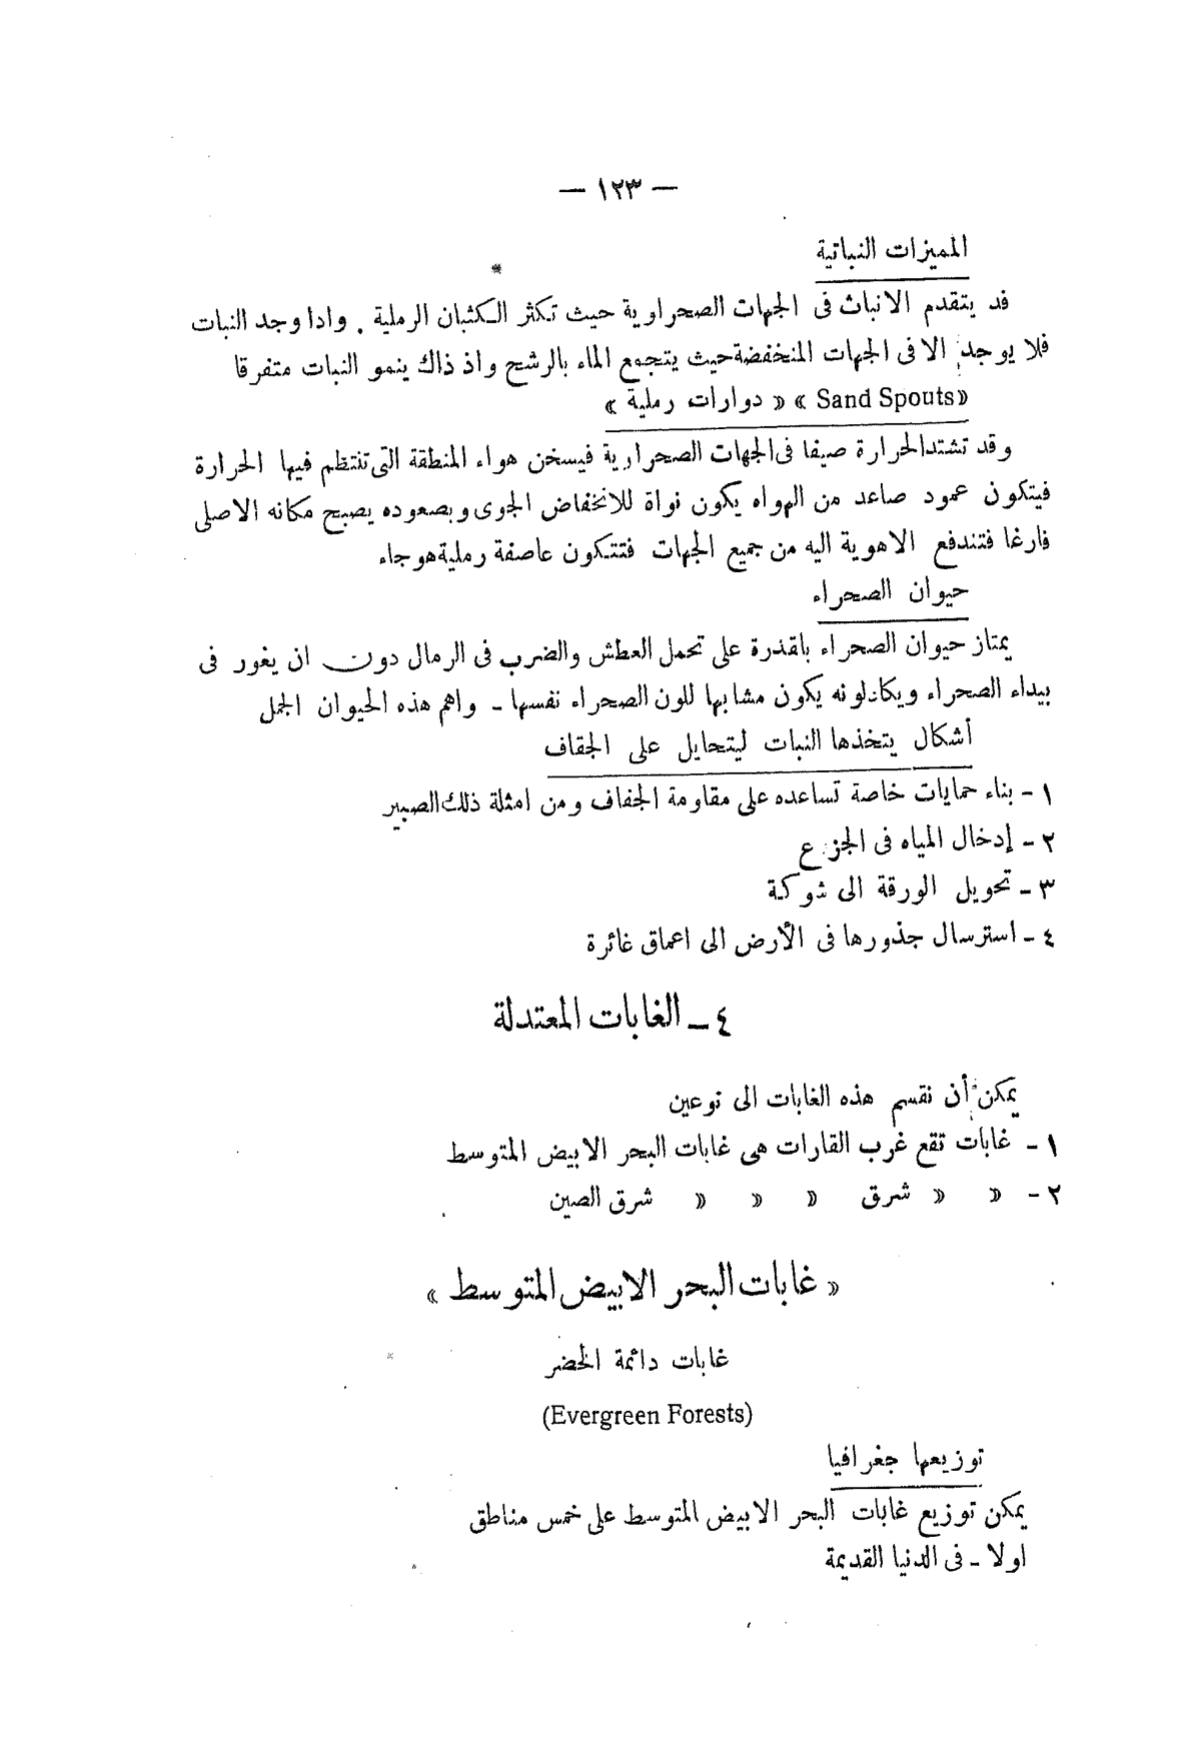 — ١٢٣ —
المميزات النباتية
قد يتقدم الانبات فى الجهات الصحراوية حيث تكثر الكثبان الرملية . واذا وجد النبات
فلا يوجد الا فى الجهات المنخفضة حيث يتجمع الماء بالرشح واذ ذاك ينمو النبات متفرقا
«Sand Spouts» « دوارات رملية »
وقد تشتد الحرارة صيفا فى الجهات الصحراوية فيسخن هواء المنطقة التى تنتظم فيها الحرارة
فيتكون عمود صاعد من الهواء يكون نواة للانخفاض الجوى وبصعوده يصبح مكانه الاصلى
فارغا فتندفع الاهوية اليه من جميع الجهات فتتكون عاصفة رملية هوجاء
حيوان الصحراء
يمتاز حيوان الصحراء باقدرة على تحمل العطش والضرب فى الرمال دون ان يغور فى
بيداء الصحراء ويكاد لونه يكون مشابها للون الصحراء نفسها - واهم هذه الحيوان الجمل
أشكال يتخذها النبات ليتحايل على الجفاف
١ - بناء حمايات خاصة تساعده على مقاومة الجفاف ومن امثلة ذلك الصبير
٢ - إدخال المياه فى الجزع
٣ - تحويل الورقة الى شوكة
٤ - استرسال جذورها فى الأرض الى اعماق غائرة
٤ - الغابات المعتدلة
يمكن أن نقسم هذه الغابات الى نوعين
١ - غابات تقع غرب القارات هى غابات البحر الابيض المتوسط
٢ - » » شرق » » » شرق الصين
« غابات البحر الابيض المتوسط »
غابات دائمة الخضر
(Evergreen Forests)
توزيعها جغرافيا
يمكن توزيع غابات البحر الابيض المتوسط على خمس مناطق
اولا - فى الدنيا القديمة